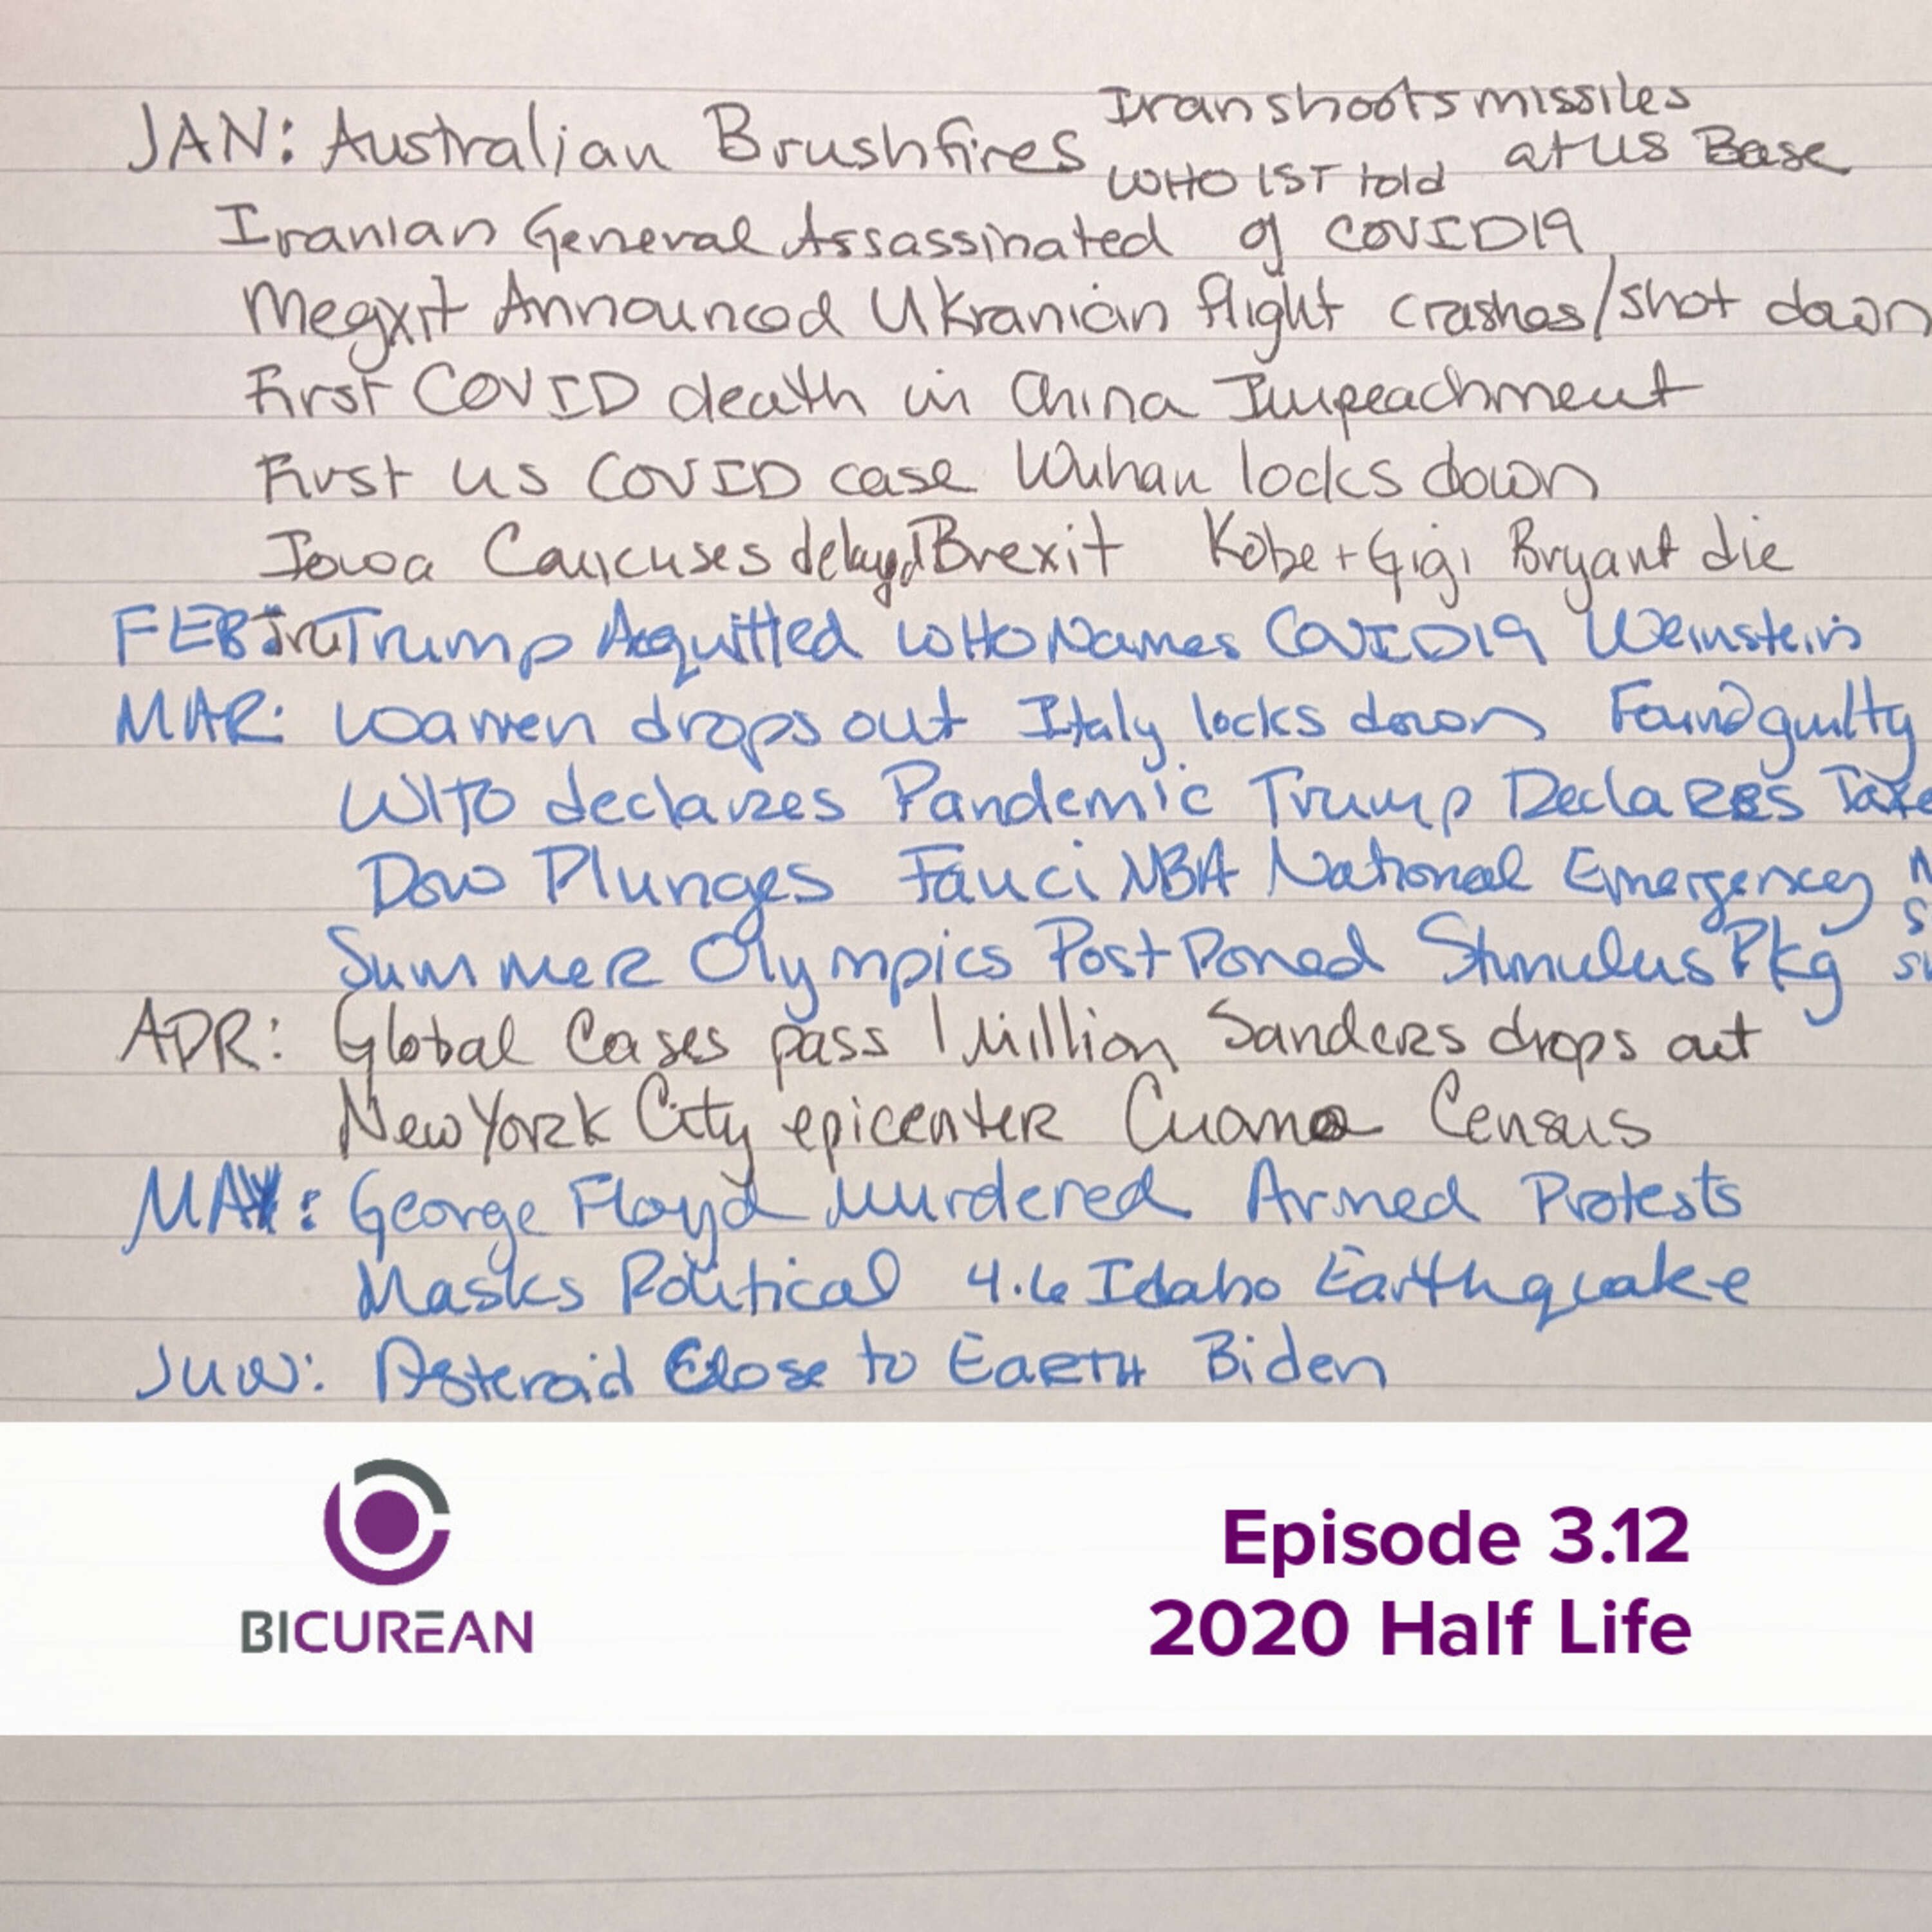 JAN: Australian Brushfires Iran shoots missiles
at US Base
WHO 1ST told
Iranian General Assassinated of COVID19
Megxit Announced Ukranian flight crashes/shot down
First COVID death in China Impeachment
First US COVID case Wuhan locks down
Iowa Caucuses delayed Brexit Kobe + Gigi Bryant die
FEB: Trump Acquitted WHO Names COVID19 Weinstein
MAR: Warren drops out Italy locks down Found guilty
WHO declares Pandemic Trump Declares
Dow Plunges Fauci NBA National Emergency
Summer Olympics PostPoned Stimulus Pkg
APR: Global Cases pass 1 Million Sanders drops out
New York City epicenter Cuomo Census
MAY: George Floyd Murdered Armed Protests
Masks Political 4.6 Idaho Earthquake
JUN: Asteroid Close to Earth Biden
BICUREAN
Episode 3.12
2020 Half Life